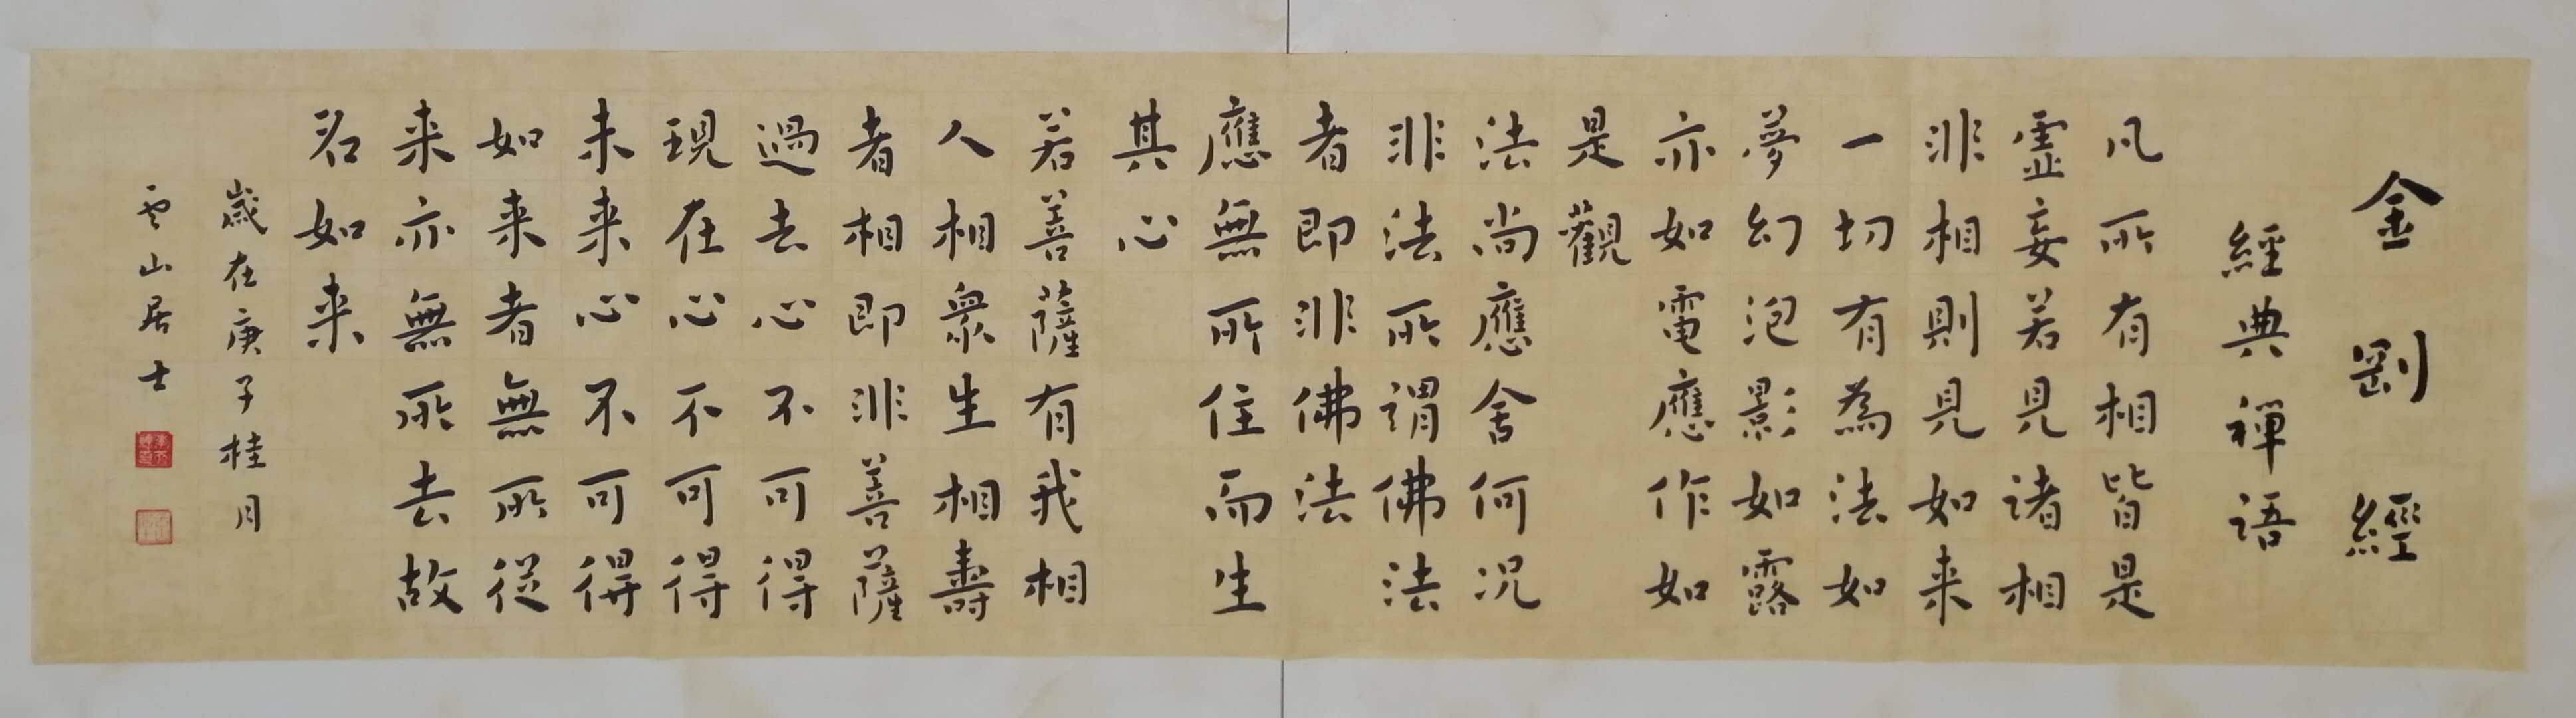 金剛經
經典禪語
凡所有相皆是
虛妄若見諸相
非相則見如来
一切有為法如
夢幻泡影如露
亦如電應作如
是觀
法尚應舍何況
非法所謂佛法
者即非佛法
應無所住而生
其心
若善薩有我相
人相衆生相壽
者相即非善薩
過去心不可得
現在心不可得
未来心不可得
如来者無所從
来亦無所去故
名如来
歲在庚子桂月
雲山居士